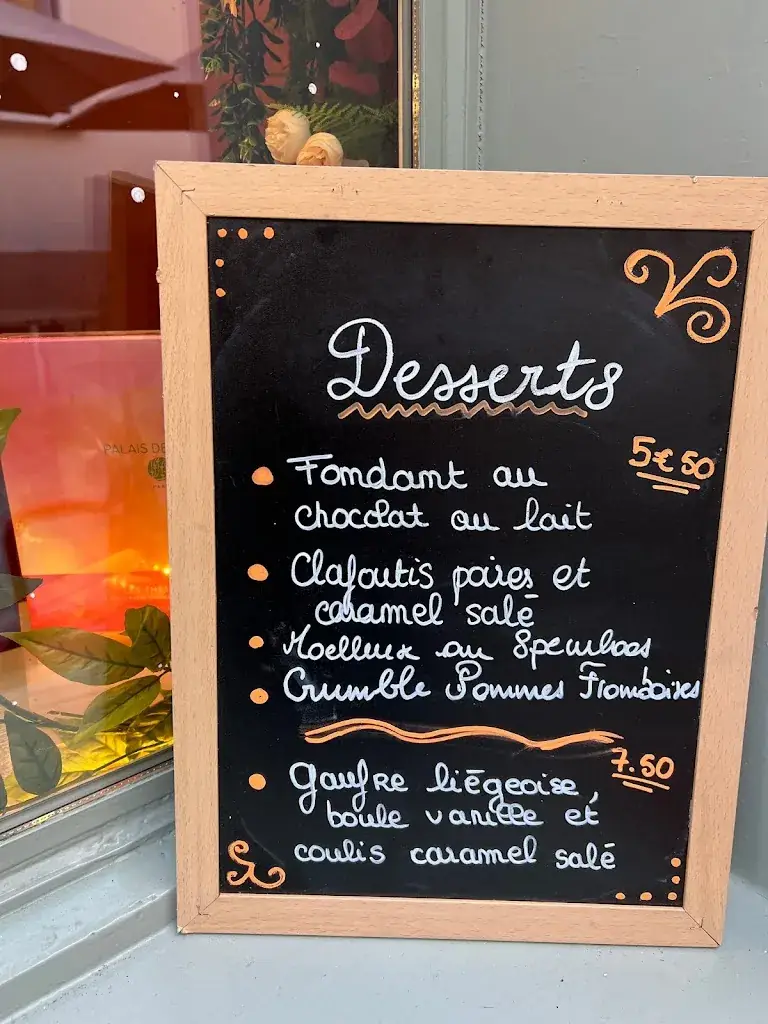 Desserts
5€50
Fondant au
chocolat au lait
Clafoutis poires et
caramel salé
Moelleux au Speculoos
Crumble Pommes Framboises
7.50
Gaufre liégeoise,
boule vanille et
coulis caramel salé
PALAIS DE